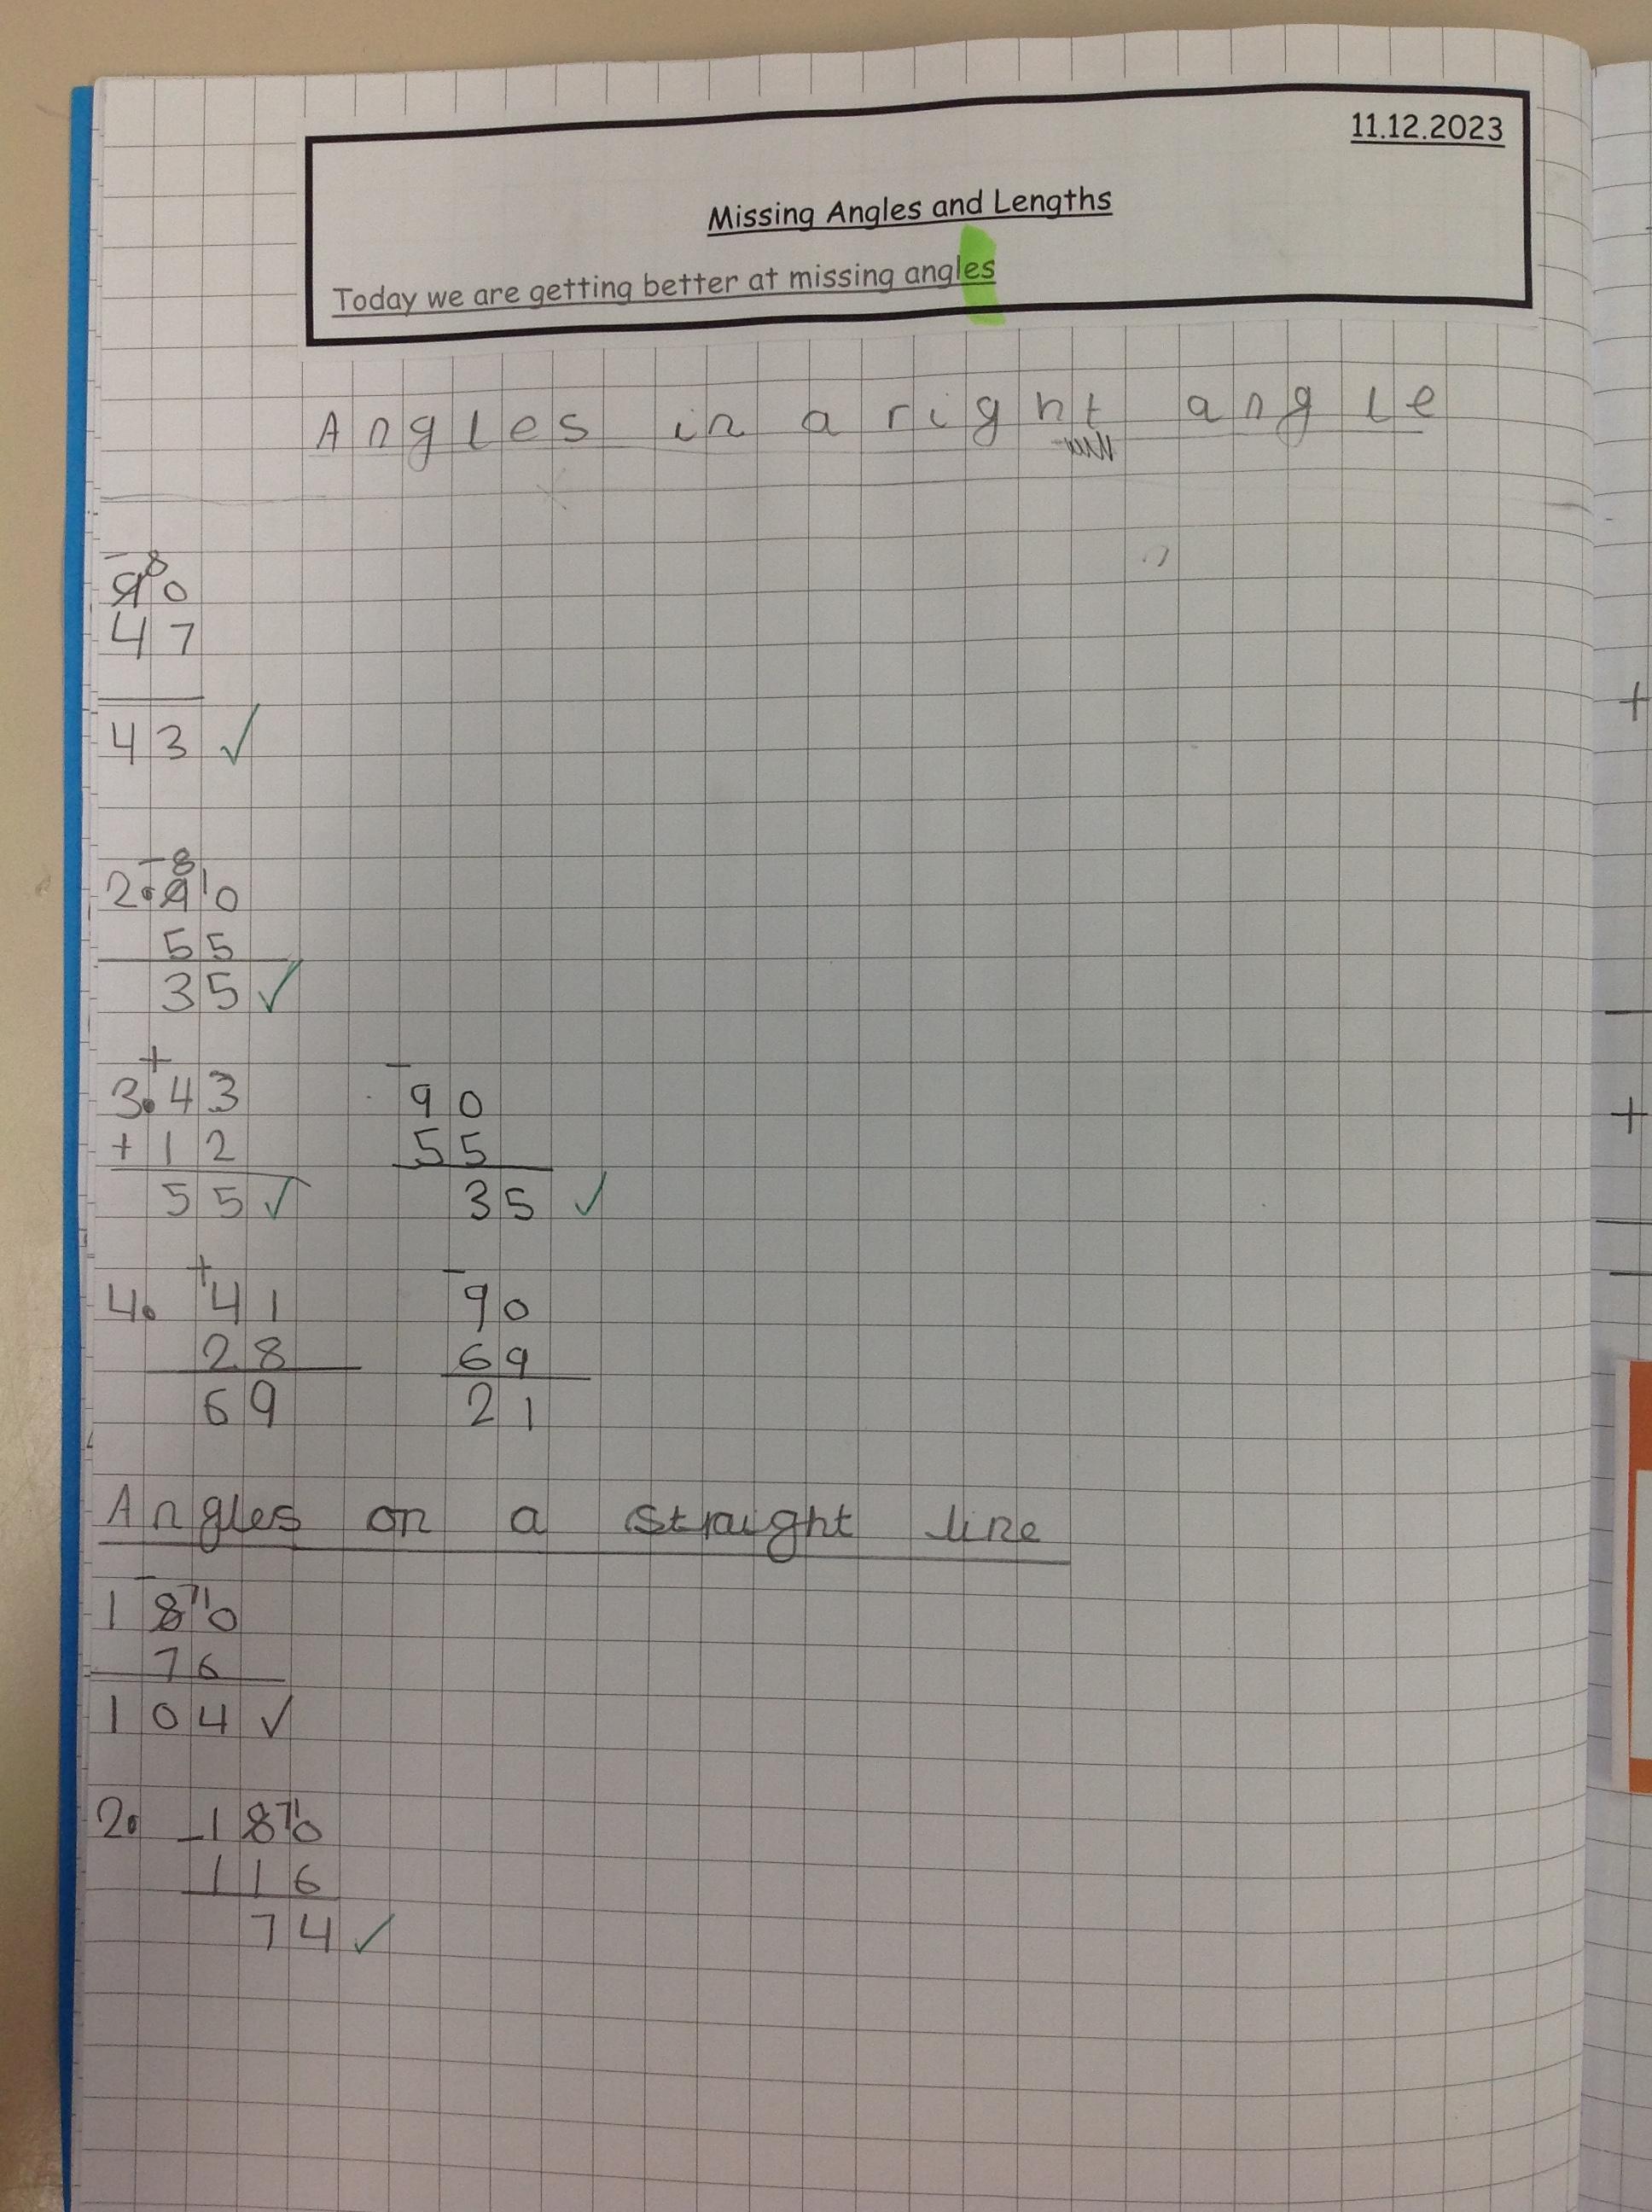 11.12.2023
Missing Angles and Lengths
Today we are getting better at missing angles
Angles in a right angle
- 8
90
47
43 ✓
- 8
2. 9 1 0
55
35 ✓
+ -
3. 43 90
+ 12 55
55 ✓ 35 ✓
+ -
4. 41 90
28 69
69 21
Angles on a straight line
-
1 8 7 1 0
76
104 ✓
2. - 1 8 7 1 0
116
74 ✓
+
+